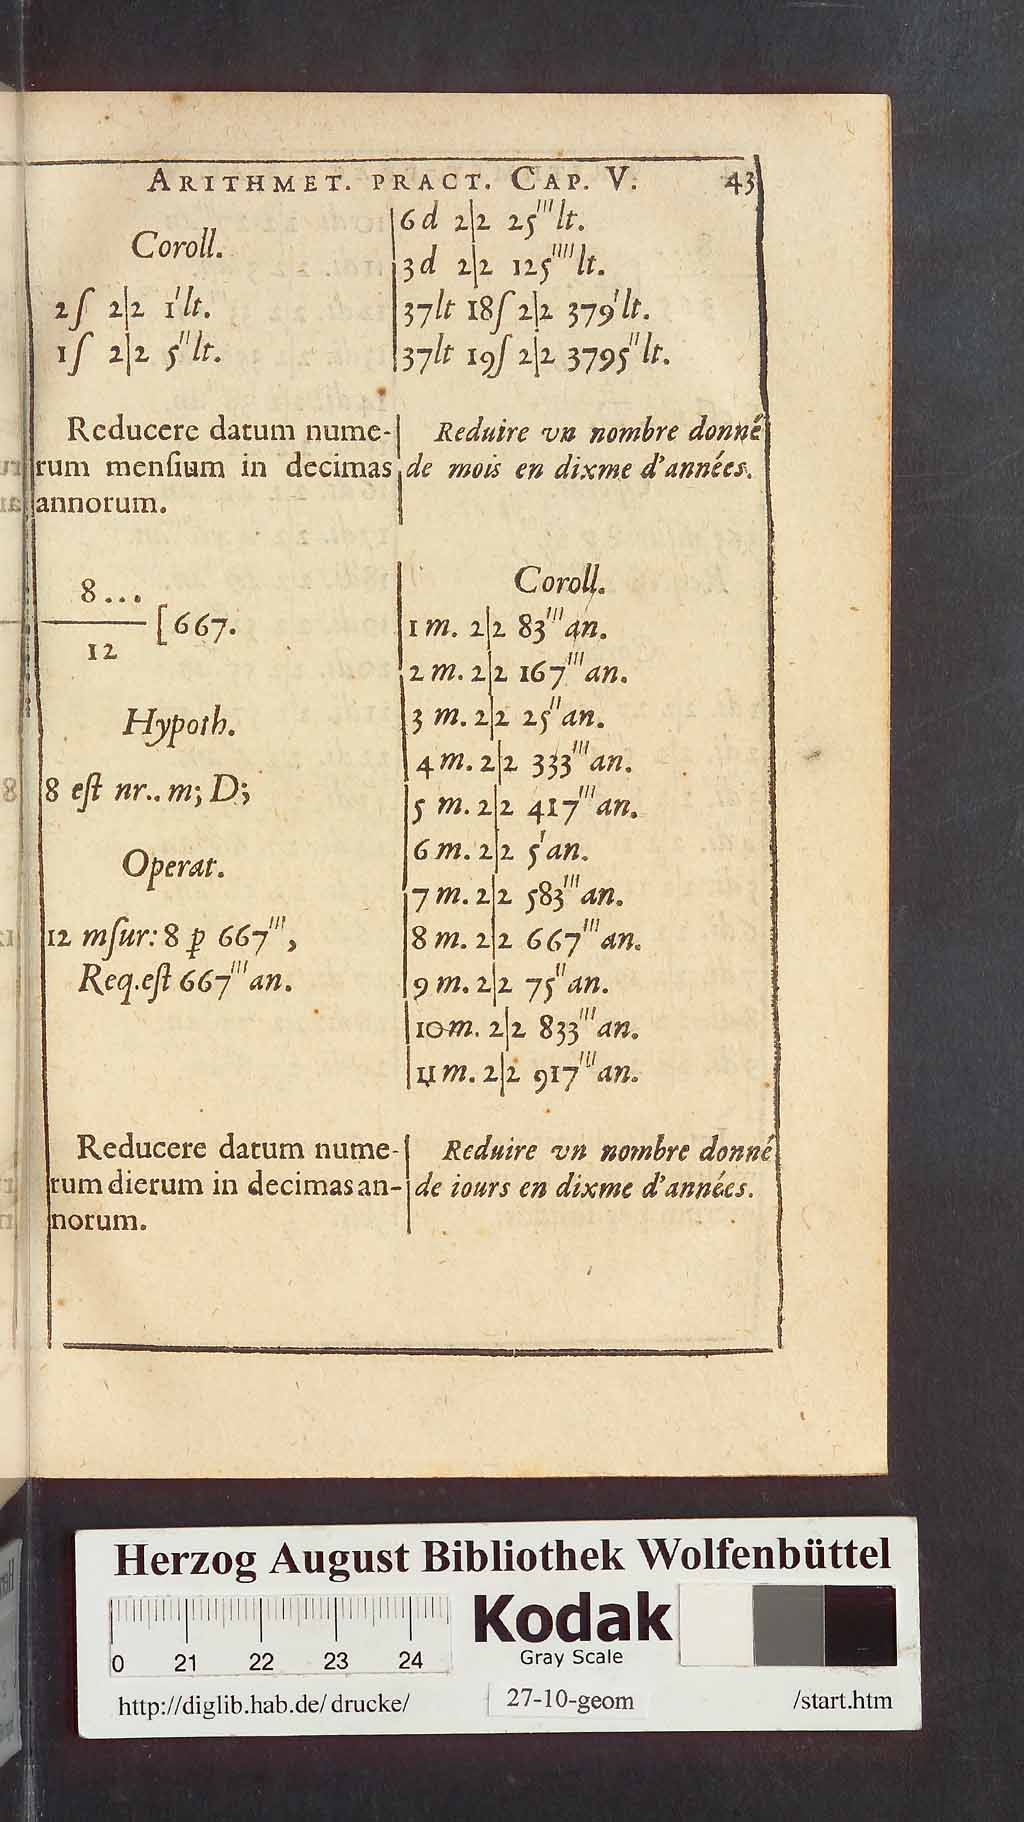 ARITHMET. PRACT. CAP. V. 43
Coroll.
2ſ 2|2 1'lt.
1ſ 2|2 5''lt.
6d 2|2 25'''lt.
3d 2|2 125''''lt.
37lt 18ſ 2|2 379'lt.
37lt 19ſ 2|2 3795''lt.
Reducere datum nume-
rum menſium in decimas
annorum.
Reduire vn nombre donné
de mois en dixme d'années.
8...
12
[667.
Hypoth.
8 eſt nr.. m; D;
Operat.
12 mſur: 8 ꝑ 667''',
Req.eſt 667'''an.
Coroll.
1 m. 2|2 83'''an.
2 m. 2|2 167'''an.
3 m. 2|2 25''an.
4 m. 2|2 333'''an.
5 m. 2|2 417'''an.
6 m. 2|2 5'an.
7 m. 2|2 583'''an.
8 m. 2|2 667'''an.
9 m. 2|2 75''an.
10 m. 2|2 833'''an.
11 m. 2|2 917'''an.
Reducere datum nume-
rum dierum in decimas an-
norum.
Reduire vn nombre donné
de iours en dixme d'années.
Herzog August Bibliothek Wolfenbüttel
0 21 22 23 24
Kodak
Gray Scale
http://diglib.hab.de/ drucke/ 27-10-geom /start.htm